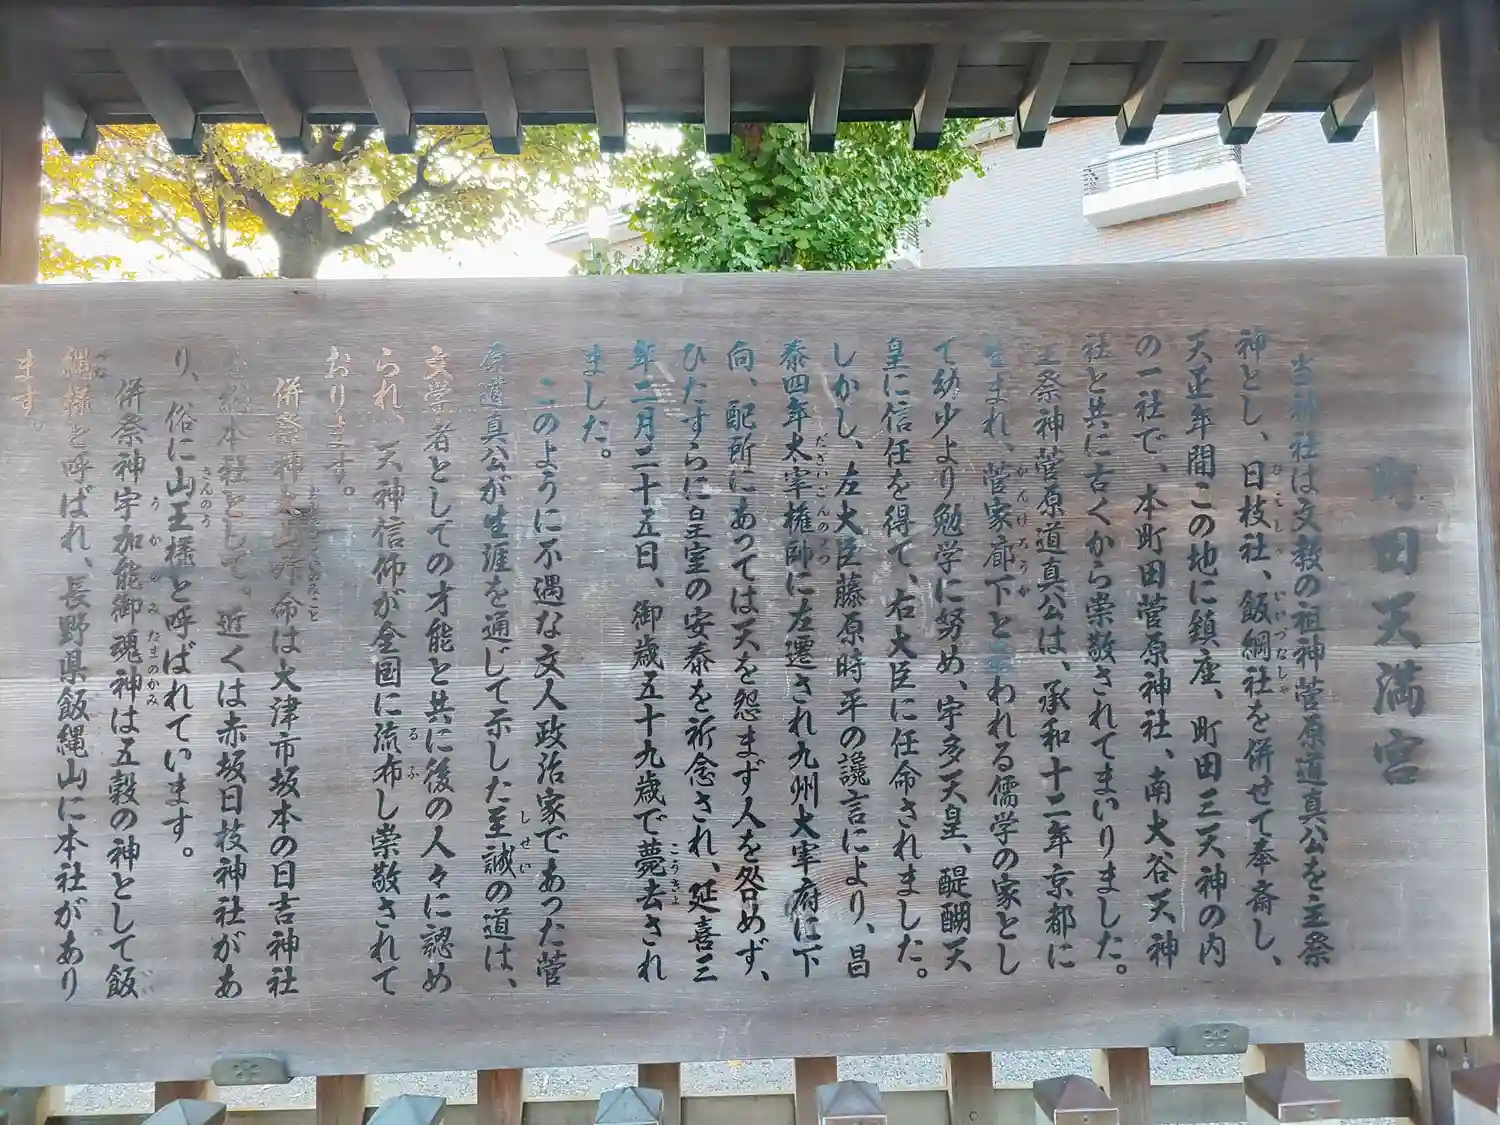 町田天満宮
当神社は文教の祖神菅原道真公を主祭
神とし、日枝社、飯綱社を併せて奉斎し、
天正年間この地に鎮座、町田三天神の内
の一社で、本町田菅原神社、南大谷天神
社と共に古くから崇敬されてまいりました。
主祭神菅原道真公は、承和十二年京都に
生まれ、菅家廊下と云われる儒学の家とし
て幼少より勉学に努め、宇多天皇、醍醐天
皇に信任を得て、右大臣に任命されました。
しかし、左大臣藤原時平の讒言により、昌
泰四年太宰権帥に左遷され九州大宰府に下
向、配所にあっては天を怨まず人を咎めず、
ひたすらに皇室の安泰を祈念され、延喜三
年二月二十五日、御歳五十九歳で薨去され
ました。
このように不遇な文人政治家であった菅
原道真公が生涯を通じて示した至誠の道は、
文学者としての才能と共に後の人々に認め
られ、天神信仰が全国に流布し崇敬されて
おります。
併祭神大山咋命は大津市坂本の日吉神社
を総本社として。近くは赤坂日枝神社があ
り、俗に山王様と呼ばれています。
併祭神宇加能御魂神は五穀の神として飯
縄様と呼ばれ、長野県飯縄山に本社があり
ます。